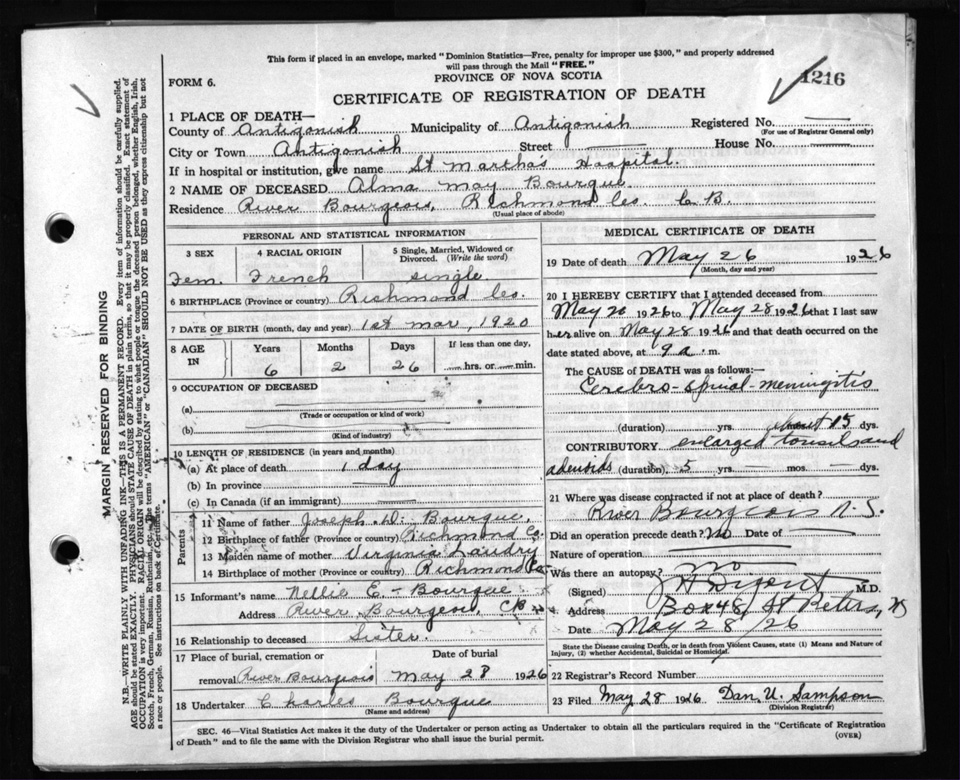 This form if placed in an envelope, marked "Dominion Statistics—Free, penalty for improper use $300," and properly addressed
will pass through the Mail "FREE."
FORM 6.
PROVINCE OF NOVA SCOTIA
1216
CERTIFICATE OF REGISTRATION OF DEATH
1 PLACE OF DEATH—
County of Antigonish Municipality of Antigonish Registered No. —
(For use of Registrar General only)
City or Town Antigonish Street — House No. —
If in hospital or institution, give name St Martha's Hospital.
2 NAME OF DECEASED Alma May Bourque.
Residence River Bourgeois, Richmond Co. C.B.
(Usual place of abode)
PERSONAL AND STATISTICAL INFORMATION
3 SEX 4 RACIAL ORIGIN 5 Single, Married, Widowed or Divorced. (Write the word)
Fem. French single
6 BIRTHPLACE (Province or country) Richmond Co.
7 DATE OF BIRTH (month, day and year) 1st mar, 1920
8 AGE IN Years Months Days If less than one day,
6 2 26 hrs. or min.
9 OCCUPATION OF DECEASED
(a)
(Trade or occupation or kind of work)
(b)
(Kind of industry)
10 LENGTH OF RESIDENCE (in years and months)
(a) At place of death 1 day
(b) In province —
(c) In Canada (if an immigrant) —
Parents
11 Name of father Joseph. D. Bourque,
12 Birthplace of father (Province or country) Richmond Co.
13 Maiden name of mother Virginia Landry
14 Birthplace of mother (Province or country) Richmond Co.
15 Informant's name Nellie E. Bourque
Address River Bourgeois, CB
16 Relationship to deceased Sister.
17 Place of burial, cremation or Date of burial
removal River Bourgeois May 28 1926
18 Undertaker Charles Bourque
(Name and address)
MEDICAL CERTIFICATE OF DEATH
19 Date of death May 26 1926
(Month, day and year)
20 I HEREBY CERTIFY that I attended deceased from
May 20 1926 to May 28 1926 that I last saw
her alive on May 28 1926 and that death occurred on the
date stated above, at 9 a. m.
The CAUSE OF DEATH was as follows:—
Cerebro-spinal-meningitis
(duration) yrs. about 15 dys.
CONTRIBUTORY enlarged tonsils and
adenoids (duration) 5 yrs. — mos. — dys.
21 Where was disease contracted if not at place of death?
River Bourgeois N.S.
Did an operation precede death? No Date of —
Nature of operation —
Was there an autopsy? no
(Signed) M.D.
Address Box 48, St Peters, NS
Date May 28/26
State the Disease causing Death, or in death from Violent Causes, state (1) Means and Nature of
Injury, (2) whether Accidental, Suicidal or Homicidal.
22 Registrar's Record Number
23 Filed May 28 1926 Dan. U. Sampson
(Division Registrar)
SEC. 46—Vital Statistics Act makes it the duty of the Undertaker or person acting as Undertaker to obtain all the particulars required in the "Certificate of Registration
of Death" and to file the same with the Division Registrar who shall issue the burial permit.
(OVER)
MARGIN RESERVED FOR BINDING
N.B.—WRITE PLAINLY WITH UNFADING INK—THIS IS A PERMANENT RECORD. Every item of information should be carefully supplied.
AGE should be stated EXACTLY. PHYSICIANS should STATE CAUSE OF DEATH in plain terms, so that it may be properly classified. Exact statement of
OCCUPATION is very important. RACIAL ORIGIN will be described by stating to what people or tongue the deceased person belonged, whether English, Irish,
Scotch, French, German, Russian, Ruthenian, etc. The terms "AMERICAN" or "CANADIAN" SHOULD NOT BE USED as they express citizenship but not
a race or people. See instructions on back of Certificate.